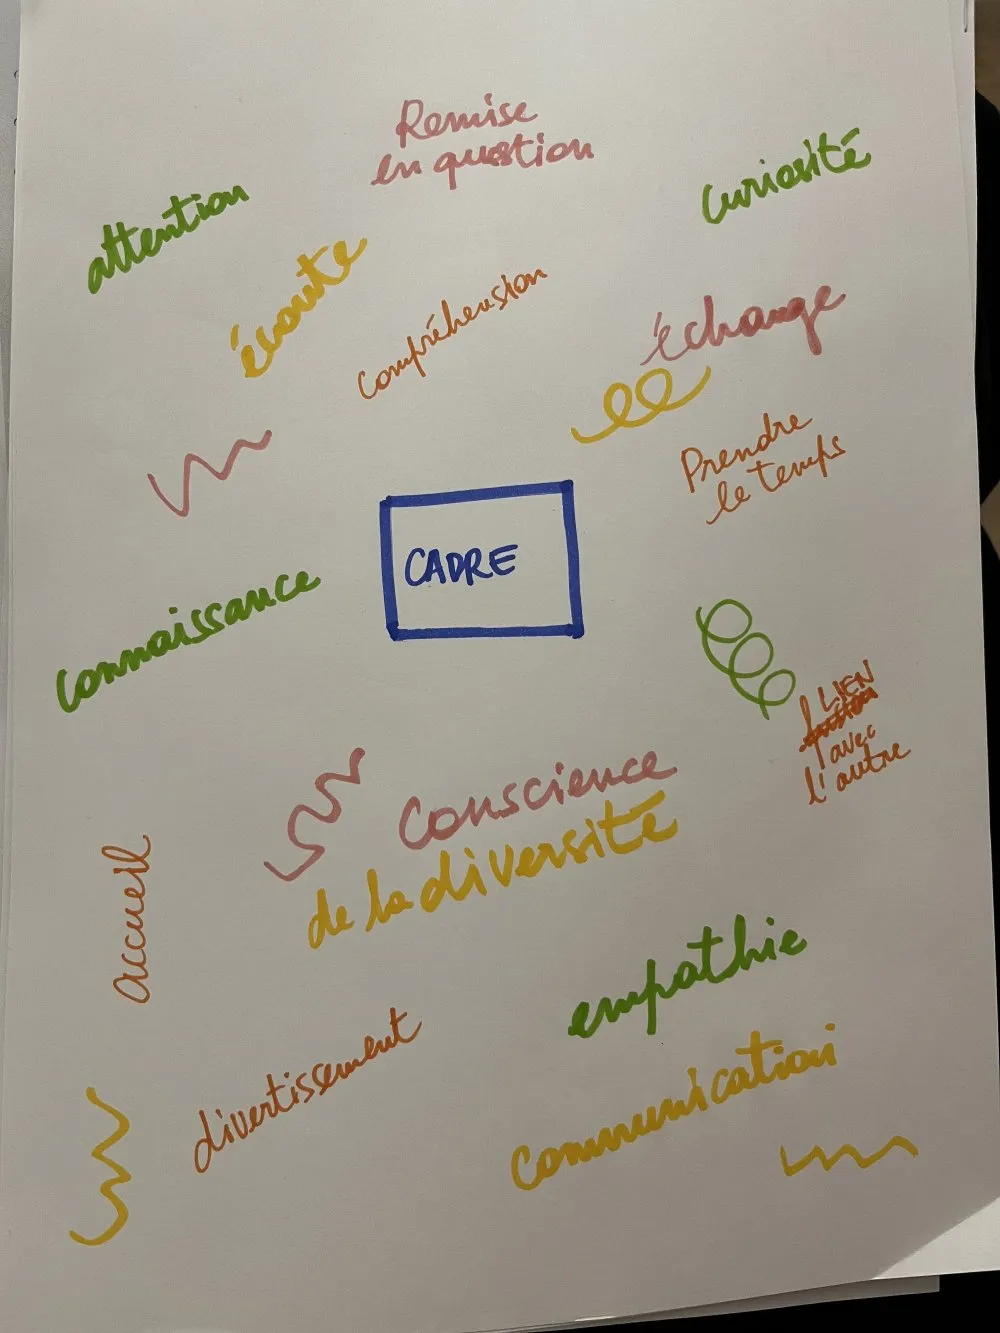 Remise
en question
attention
curiosité
écoute
compréhension
échange
Prendre
le temps
CADRE
connaissance
LIEN
avec
l'autre
Conscience
de la diversité
accueil
empathie
divertissement
communication